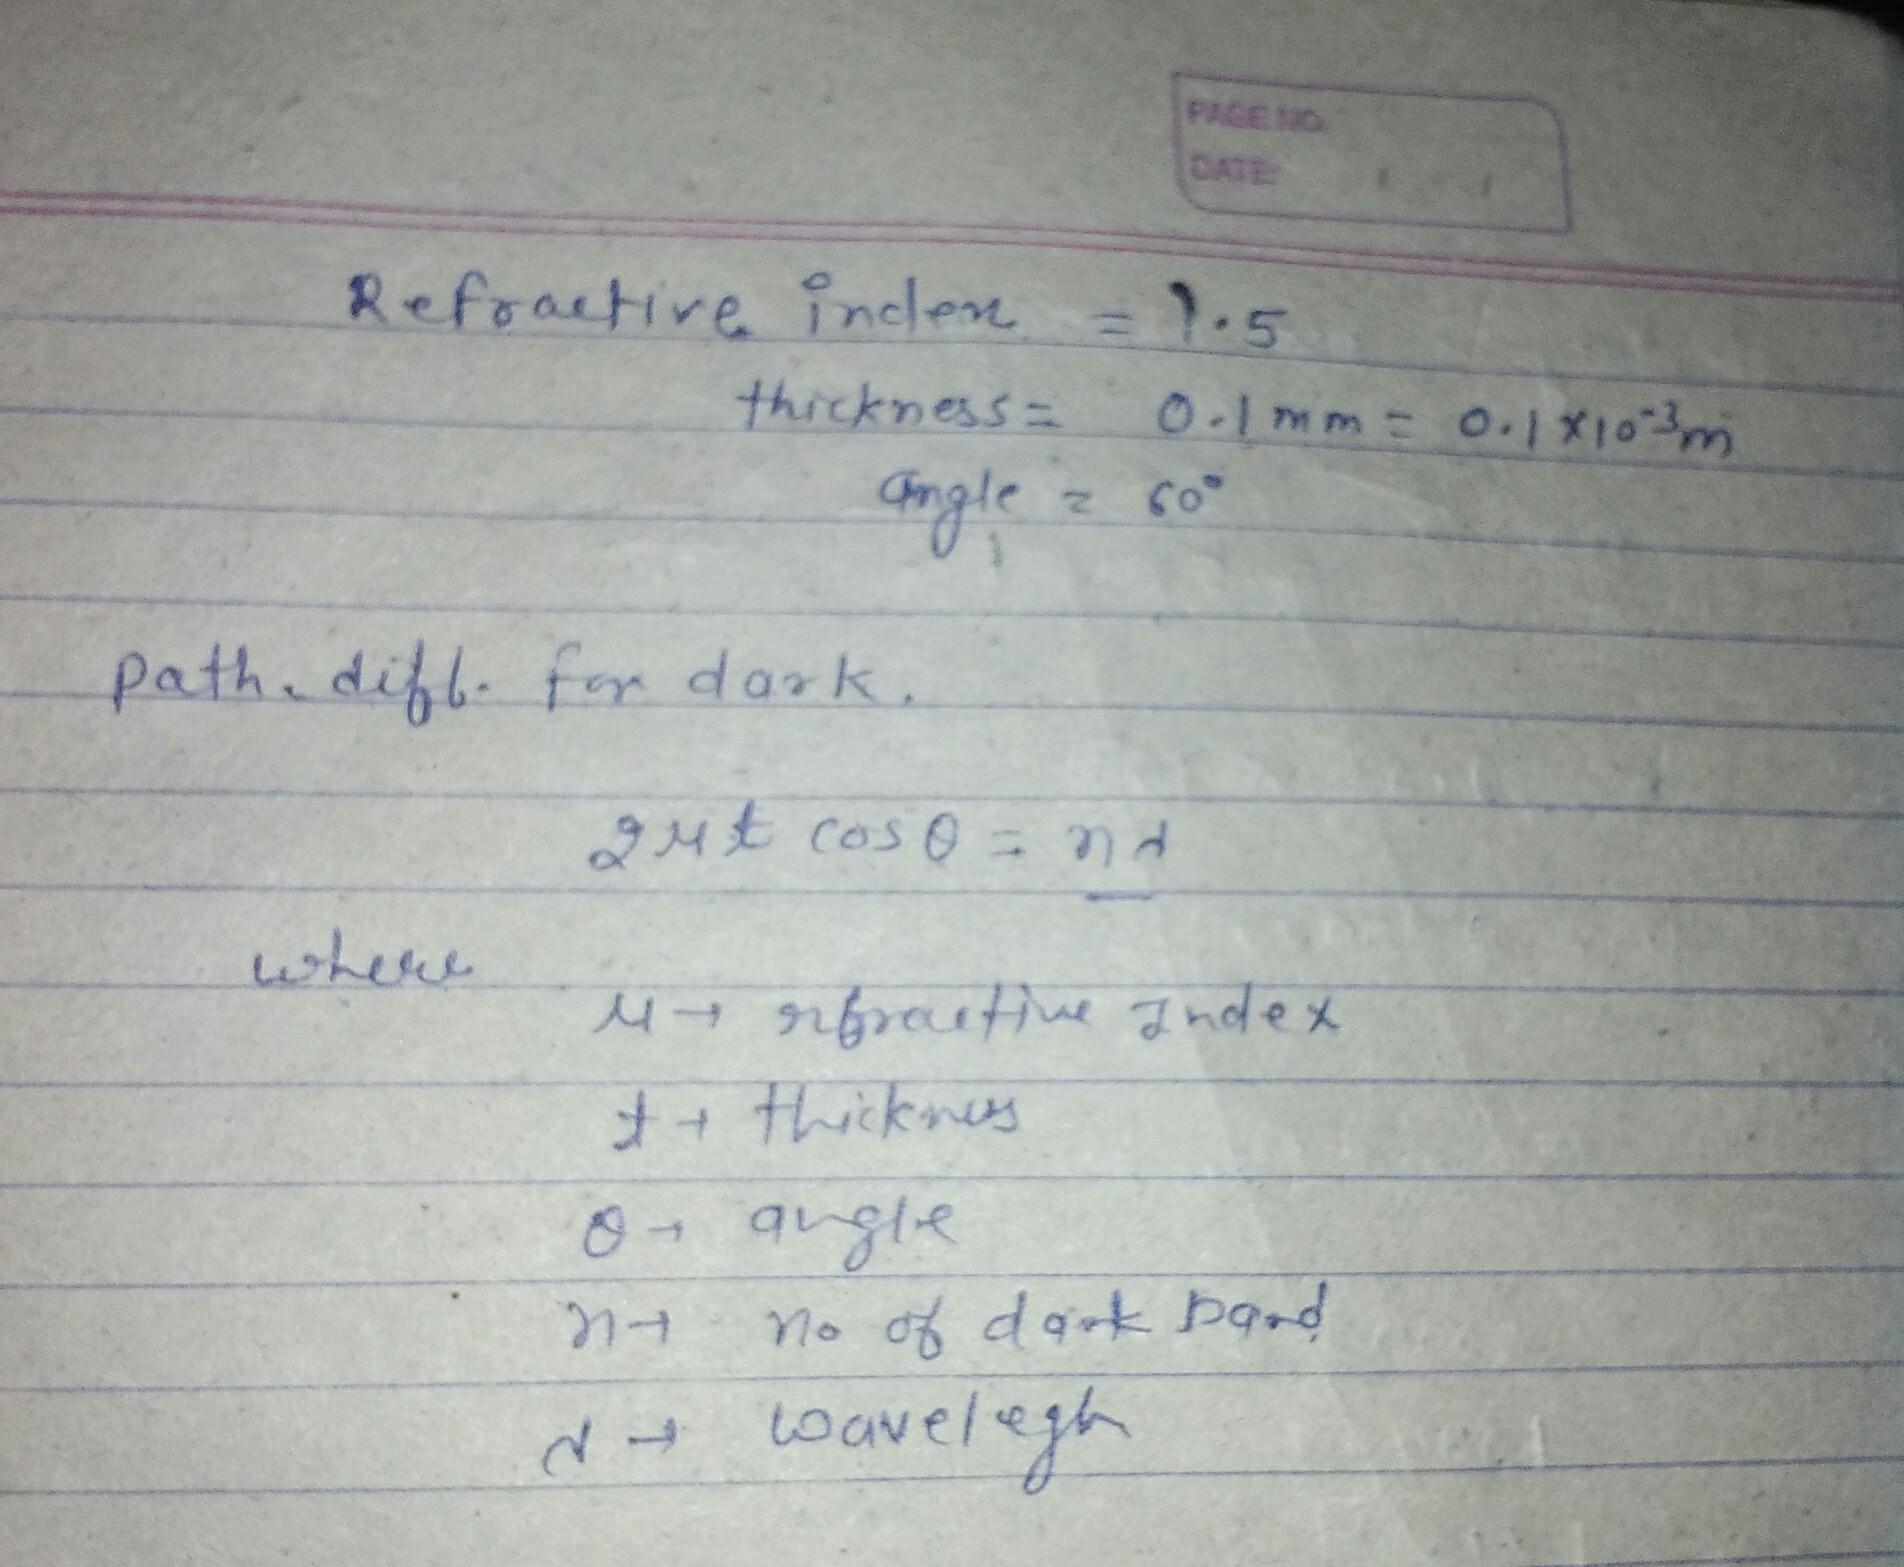 PAGE NO.
DATE:
Refractive index = 1.5
thickness = 0.1 mm = 0.1 × 10⁻³m
Angle = 60°
path. diff. for dark.
2μt cos θ = nλ
where
μ → refractive Index
t → thickness
θ → angle
n → no of dark band
λ → wavelegh